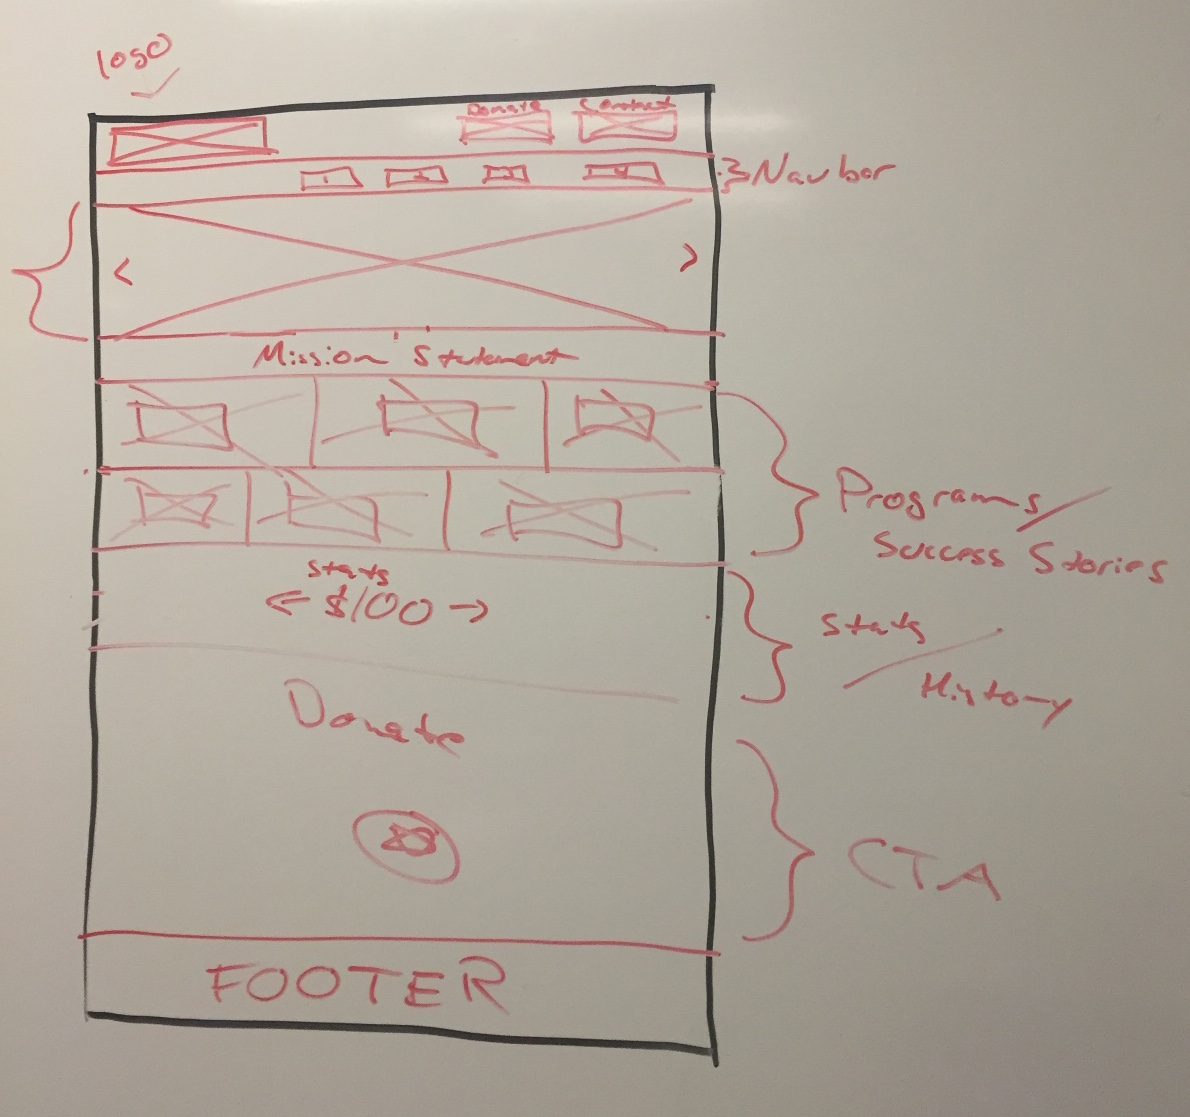 logo
Donate
Contact
1
Navbar
< >
Mission Statement
Programs/
Success Stories
Stats
← $100 →
Stats
/
History
Donate
CTA
FOOTER